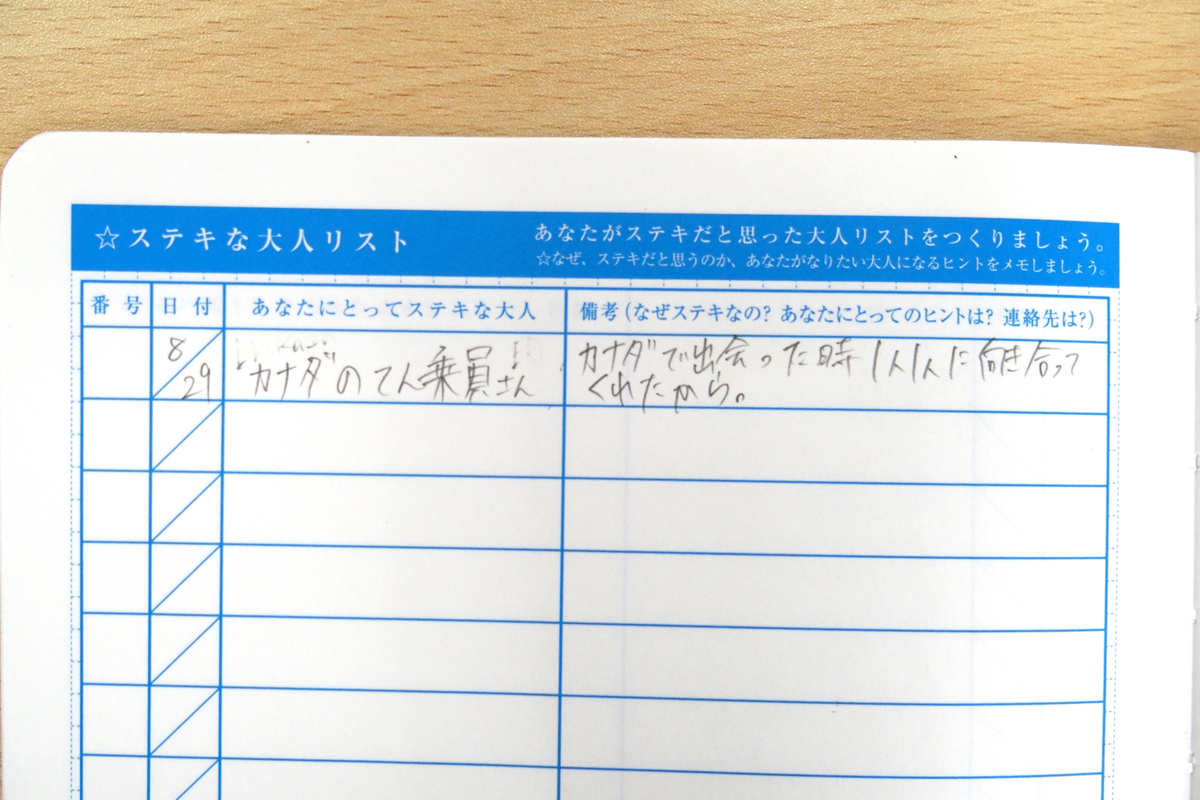 ☆ステキな大人リスト
あなたがステキだと思った大人リストをつくりましょう。
☆なぜ、ステキだと思うのか、あなたがなりたい大人になるヒントをメモしましょう。
番号 日付 あなたにとってステキな大人 備考（なぜステキなの？あなたにとってのヒントは？連絡先は？）
8/29
カナダのてん乗員さん
カナダで出会った時1人1人に向き合って
くれたから。